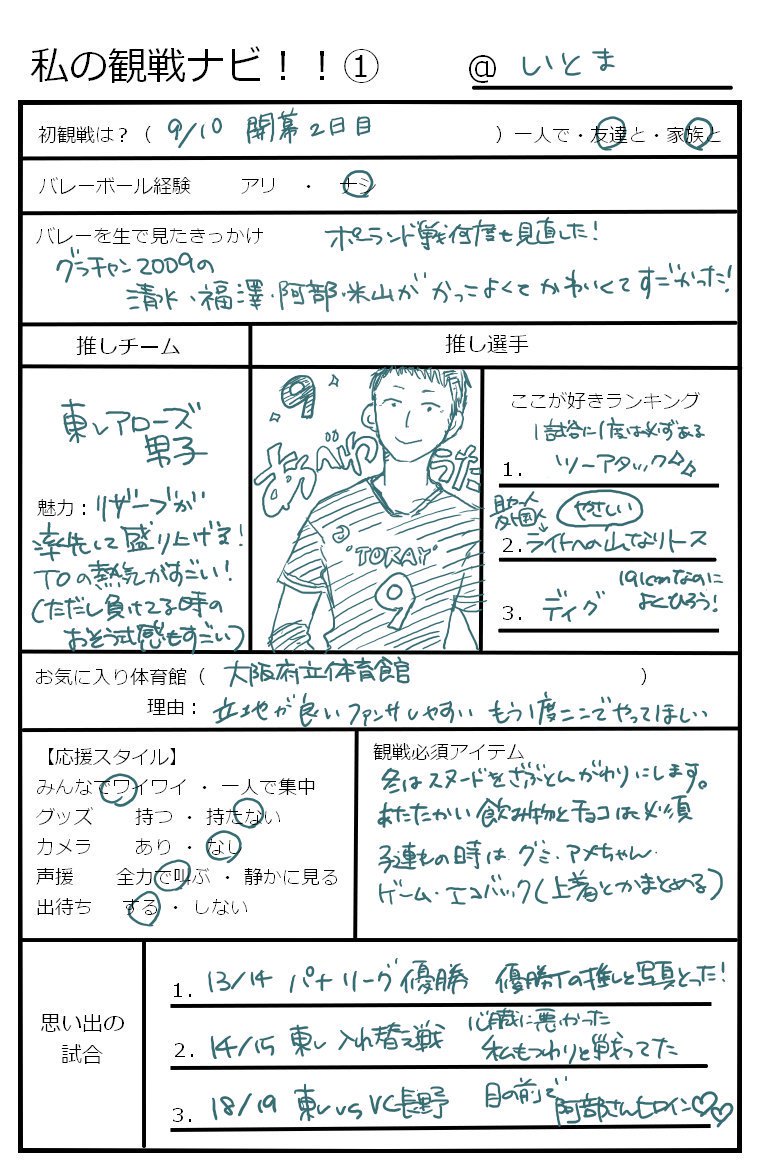 私の観戦ナビ！！① @ いとま
初観戦は？（ 9/10 開幕2日目 ）一人で・友達と・家族と
バレーボール経験 アリ ・ ナシ
バレーを生で見たきっかけ ポーランド戦何度も見直した！
グラチャン2009の
清水・福澤・阿部・米山がかっこよくてかわいくてすごかった！
推しチーム 推し選手
東レアローズ
男子
魅力：リザーブが
率先して盛り上げる！
TOの熱気がすごい！
(ただし負けてる時の
おそう式感もすごい)
9
あべゆうた
TORAY
9
ここが好きランキング
1試合に1度は必ずある
1. ツーアタック☆☆
助っ人
外国人
やさしい
2. ライトへの山なりトース
191cmなのに
よくひろう！
3. ディグ
お気に入り体育館（ 大阪府立体育館 ）
理由： 立地が良い ファンサしやすい もう1度ここでやってほしい
【応援スタイル】
みんなでワイワイ ・ 一人で集中
グッズ 持つ ・ 持たない
カメラ あり ・ ない
声援 全力で叫ぶ ・ 静かに見る
出待ち する ・ しない
観戦必須アイテム
冬はスヌードをざぶとんがわりにします。
あたたかい飲み物とチョコは必須
子連れの時は グミ・アメちゃん・
ゲーム・エコバック(上着とかまとめる)
思い出の
試合
1. 13/14 パナリーグ優勝 優勝Tの推しと写真とった！
2. 14/15 東レ入れ替え戦 心臓に悪かった
私もつわりと戦ってた
3. 18/19 東レvsVC長野 目の前で
阿部さんヒロイン♡♡